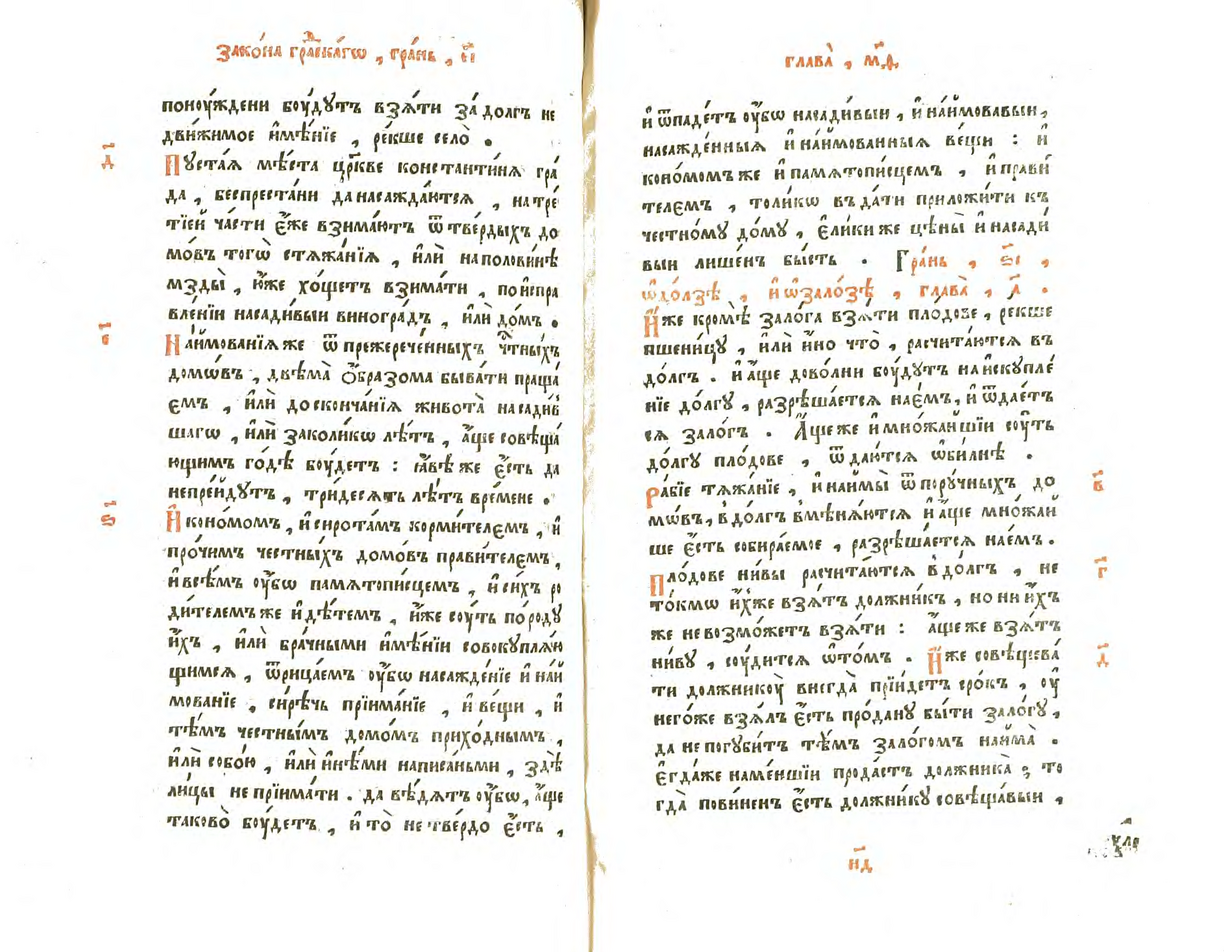 Зако́на гра́дскагѡ , гра́нь , є҃і
поноу́ждени боу́дутъ взѧ́ти за́ долгъ не
дви́жимое и҆мѣ́нїе , ре́кше село̀ .
д҃і
Пꙋста́ѧ мѣ́ста цр҃кве константи́нѧ гра́
да , беспреста́ни да насажда́ютсѧ , на тре́
тїей ча́сти є҆́же взима́ютъ ѿ тве́рдыхъ до
мо́въ тогѡ̀ стѧжа́нїѧ , и҆лѝ на половинѣ
мзды̀ , ю҆́же хо́щетъ взима́ти , по и҆спра
вле́нїи насади́выи виногра́дъ , и҆лѝ до́мъ .
є҃і
Наймова́нїѧ же ѿ прежерече́нныхъ ч҃тны́хъ
домѡ́въ , двѣма̀ ѻ҆́бразома быва́ти праща́
ємъ , и҆лѝ до сконча́нїѧ живота̀ насади́в
шагѡ , и҆лѝ за коли́кѡ лѣ́тъ , а҆́ще совѣща́
ющимъ го́дѣ боу́детъ : ꙗ҆́вѣ же є҆́сть да
непре́йдутъ , три́десѧть лѣ́тъ времене .
ѕ҃і
И҆коно́момъ , и҆ сирота́мъ корми́телємъ , и҆
про́чимъ честны́хъ домо́въ прави́телємъ ,
и҆ все́мъ оу҆́бѡ памѧтопи́сцемъ , и҆ си́хъ ро
ди́телемъ же и҆ дѣ́темъ , и҆́же соу́ть по ро́ду
и҆́хъ , и҆лѝ бра́чными и҆мѣ́нїи совокуплѧ́ю
щимсѧ , ѿрица́ємъ оу҆́бѡ насажде́нїе и҆ най
мова́нїе , си́рѣчь прїима́нїе , и҆ ве́щи , и҆
тѣ́мъ честны́мъ домо́мъ прихо́днымъ ,
и҆лѝ собо́ю , и҆лѝ и҆нѣ́ми написа́ными , здѣ̀
ли́цы не прїима́ти . да вѣ́дѧтъ оу҆́бѡ , а҆́ще
таково̀ боу́детъ , и҆ то̀ не тве́рдо є҆́сть ,
глава̀ , м҃ѳ
и҆ ѿпаде́тъ оу҆́бѡ насади́выи , и҆ наймова́выи ,
насажде́нныѧ и҆ на́ймованныѧ ве́щи : и҆
коно́момъ же и҆ памѧтопи́сцемъ , и҆ прави́
телємъ , толи́кѡ въда́ти приложи́ти къ
честно́му до́му , є҆ли́ки же цѣны̀ и҆ насади́
выи лише́нъ бы́сть . Гра́нь , ѕ҃і ,
ѡ҆ до́лзѣ , и҆ ѡ҆ зало́зѣ , глава̀ , а҃ .
И҆́же кромѣ̀ зало́га взѧ́ти плодове , ре́кше
пшени́цу , и҆лѝ и҆́но что̀ , расчита́ютсѧ въ
до́лгъ . и҆ а҆́ще дово́лни боу́дутъ на и҆скупле́
нїе до́лгу , разрѣша́етсѧ нае́мъ , и҆ ѿдае́тъ
сѧ зало́гъ . А҆́ще же и҆ мно́жайшїи соу́ть
до́лгу пло́дове , ѿдаю́тсѧ ѡ҆би́лнѣ .
в҃
Ра́бїе тѧжа́нїе , и҆ наймы̀ ѿ пору́чныхъ до
мѡ́въ , в до́лгъ вмѣнѧ́ютсѧ и҆ а҆́ще мно́жай
ше є҆́сть собира́емое , разрѣша́етсѧ нае́мъ .
г҃
Пло́дове ни́вы расчита́ютсѧ в до́лгъ , не
то́кмѡ и҆́хже взѧ́тъ должни́къ , но ни и҆́хъ
же не возмо́жетъ взѧ́ти : а҆́ще же взѧ́тъ
ни́ву , соу́дитсѧ ѡ҆ то́мъ . И҆́же совѣщева́
д҃
ти должникоу̀ внегда̀ прїи́детъ сро́къ , оу҆
него́же взѧ́лъ є҆́сть про́дану бы́ти зало́гу ,
да не погуби́тъ тѣ́мъ зало́гомъ найма̀ .
Є҆гда́же наме́ншїи прода́стъ должника̀ ; то
гда̀ пови́ненъ є҆́сть должни́ку совѣща́выи ,
н҃д